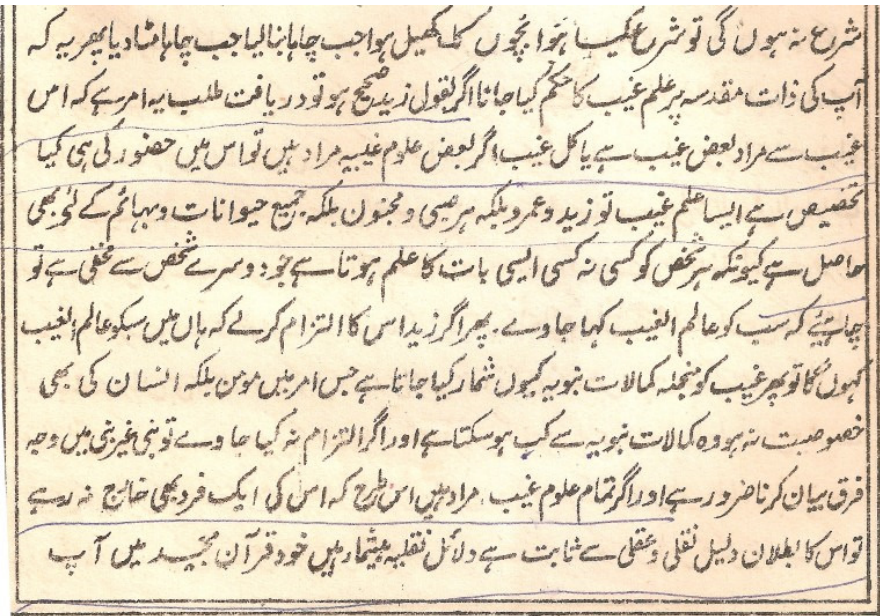 شرع نہ ہوں گی تو شرع کیا ہوا بچوں کا کھیل ہوا جب چاہا بنا لیا جب چاہا مٹا دیا پھر یہ کہ
آپ کی ذات مقدسہ پر علم غیب کا حکم کیا جانا اگر بقول زید صحیح ہو تو دریافت طلب یہ امر ہے کہ اس
غیب سے مراد بعض غیب ہے یا کل غیب اگر بعض علوم غیبیہ مراد ہیں تو اس میں حضور کی ہی کیا
تخصیص ہے ایسا علم غیب تو زید و عمرو بلکہ ہر صبی و مجنون بلکہ جمیع حیوانات و بہائم کے لئے بھی
حاصل ہے کیونکہ ہر شخص کو کسی نہ کسی ایسی بات کا علم ہوتا ہے جو دوسرے شخص سے مخفی ہے تو
چاہیئے کہ سب کو عالم الغیب کہا جاوے۔ پھر اگر زید اس کا التزام کر لے کہ ہاں میں سبکو عالم الغیب
کہوں گا تو پھر غیب کو منجملہ کمالات نبویہ کیوں شمار کیا جاتا ہے جس امر میں مومن بلکہ انسان کی بھی
خصوصیت نہ ہو وہ کمالات نبویہ سے کب ہو سکتا ہے اور اگر التزام نہ کیا جاوے تو نبی غیر نبی میں وجہ
فرق بیان کرنا ضرور ہے اور اگر تمام علوم غیب مراد ہیں اس طرح کہ اس کی ایک فرد بھی خارج نہ رہے
تو اس کا بطلان دلیل نقلی و عقلی سے ثابت ہے دلائل نقلیہ بیشمار ہیں خود قرآن مجید میں آپ